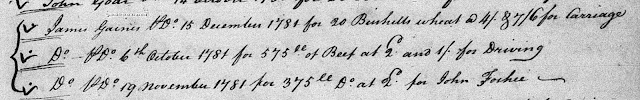 James Gaines p Do. 15 December 1781 for 20 Bushells wheat @ 4/. & 7/6 for Carriage
Do p Do. 6th October 1781 for 575 lb of Beef at 2d. and 1/. for Driving
Do p Do. 19 November 1781 for 375 lb Do at 2d. for John Foshee